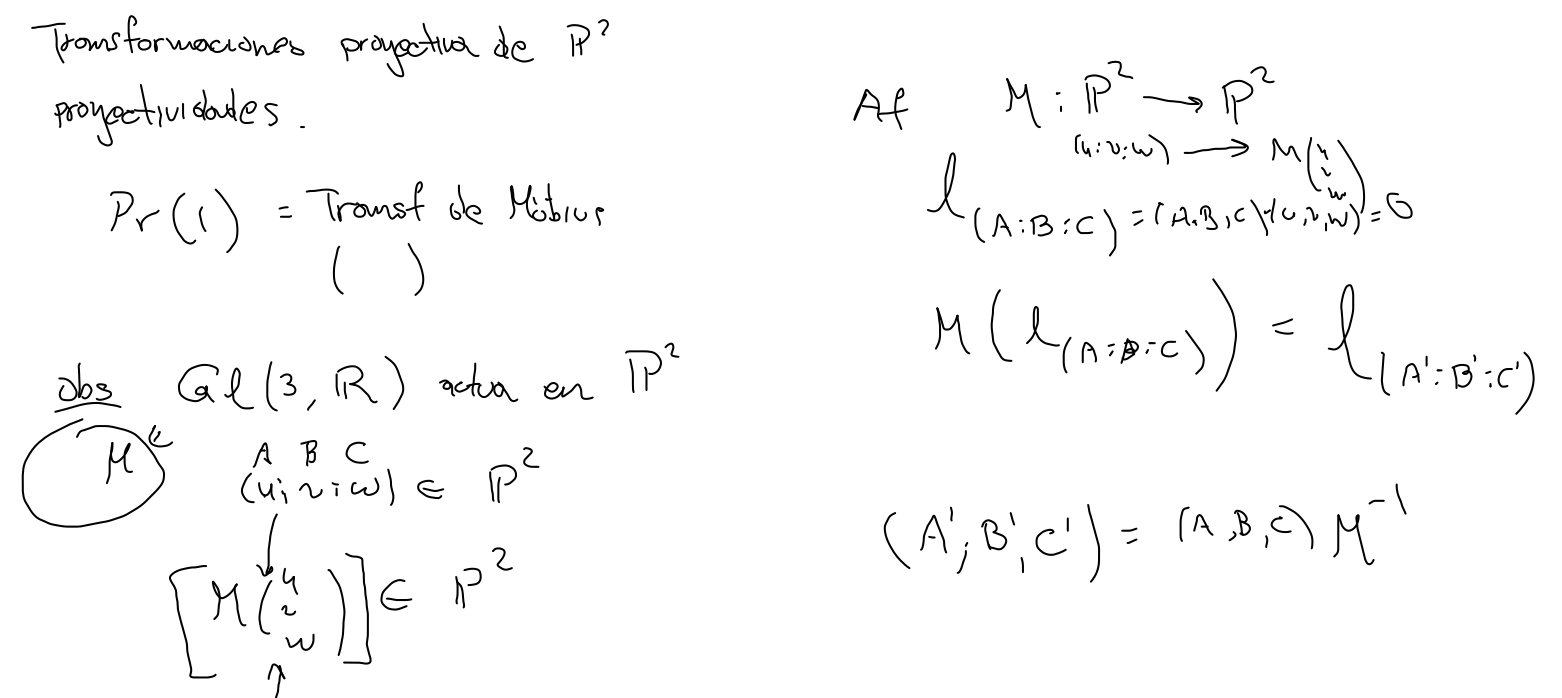 Transformaciones proyectiva de ℙ²
proyectividades.
Pr(1) = Transf de Möbius
( )
obs Gl(3, ℝ) actua en ℙ²
M
A B C
(u:v:w) ∈ ℙ²
[M(u v w)] ∈ ℙ²
Af M : ℙ² → ℙ²
(u:v:w) → M(u v w)
l(A:B:C) = (A,B,C)·(u,v,w) = 0
M(l(A:B:C)) = l(A':B':C')
(A',B',C') = (A,B,C) M⁻¹